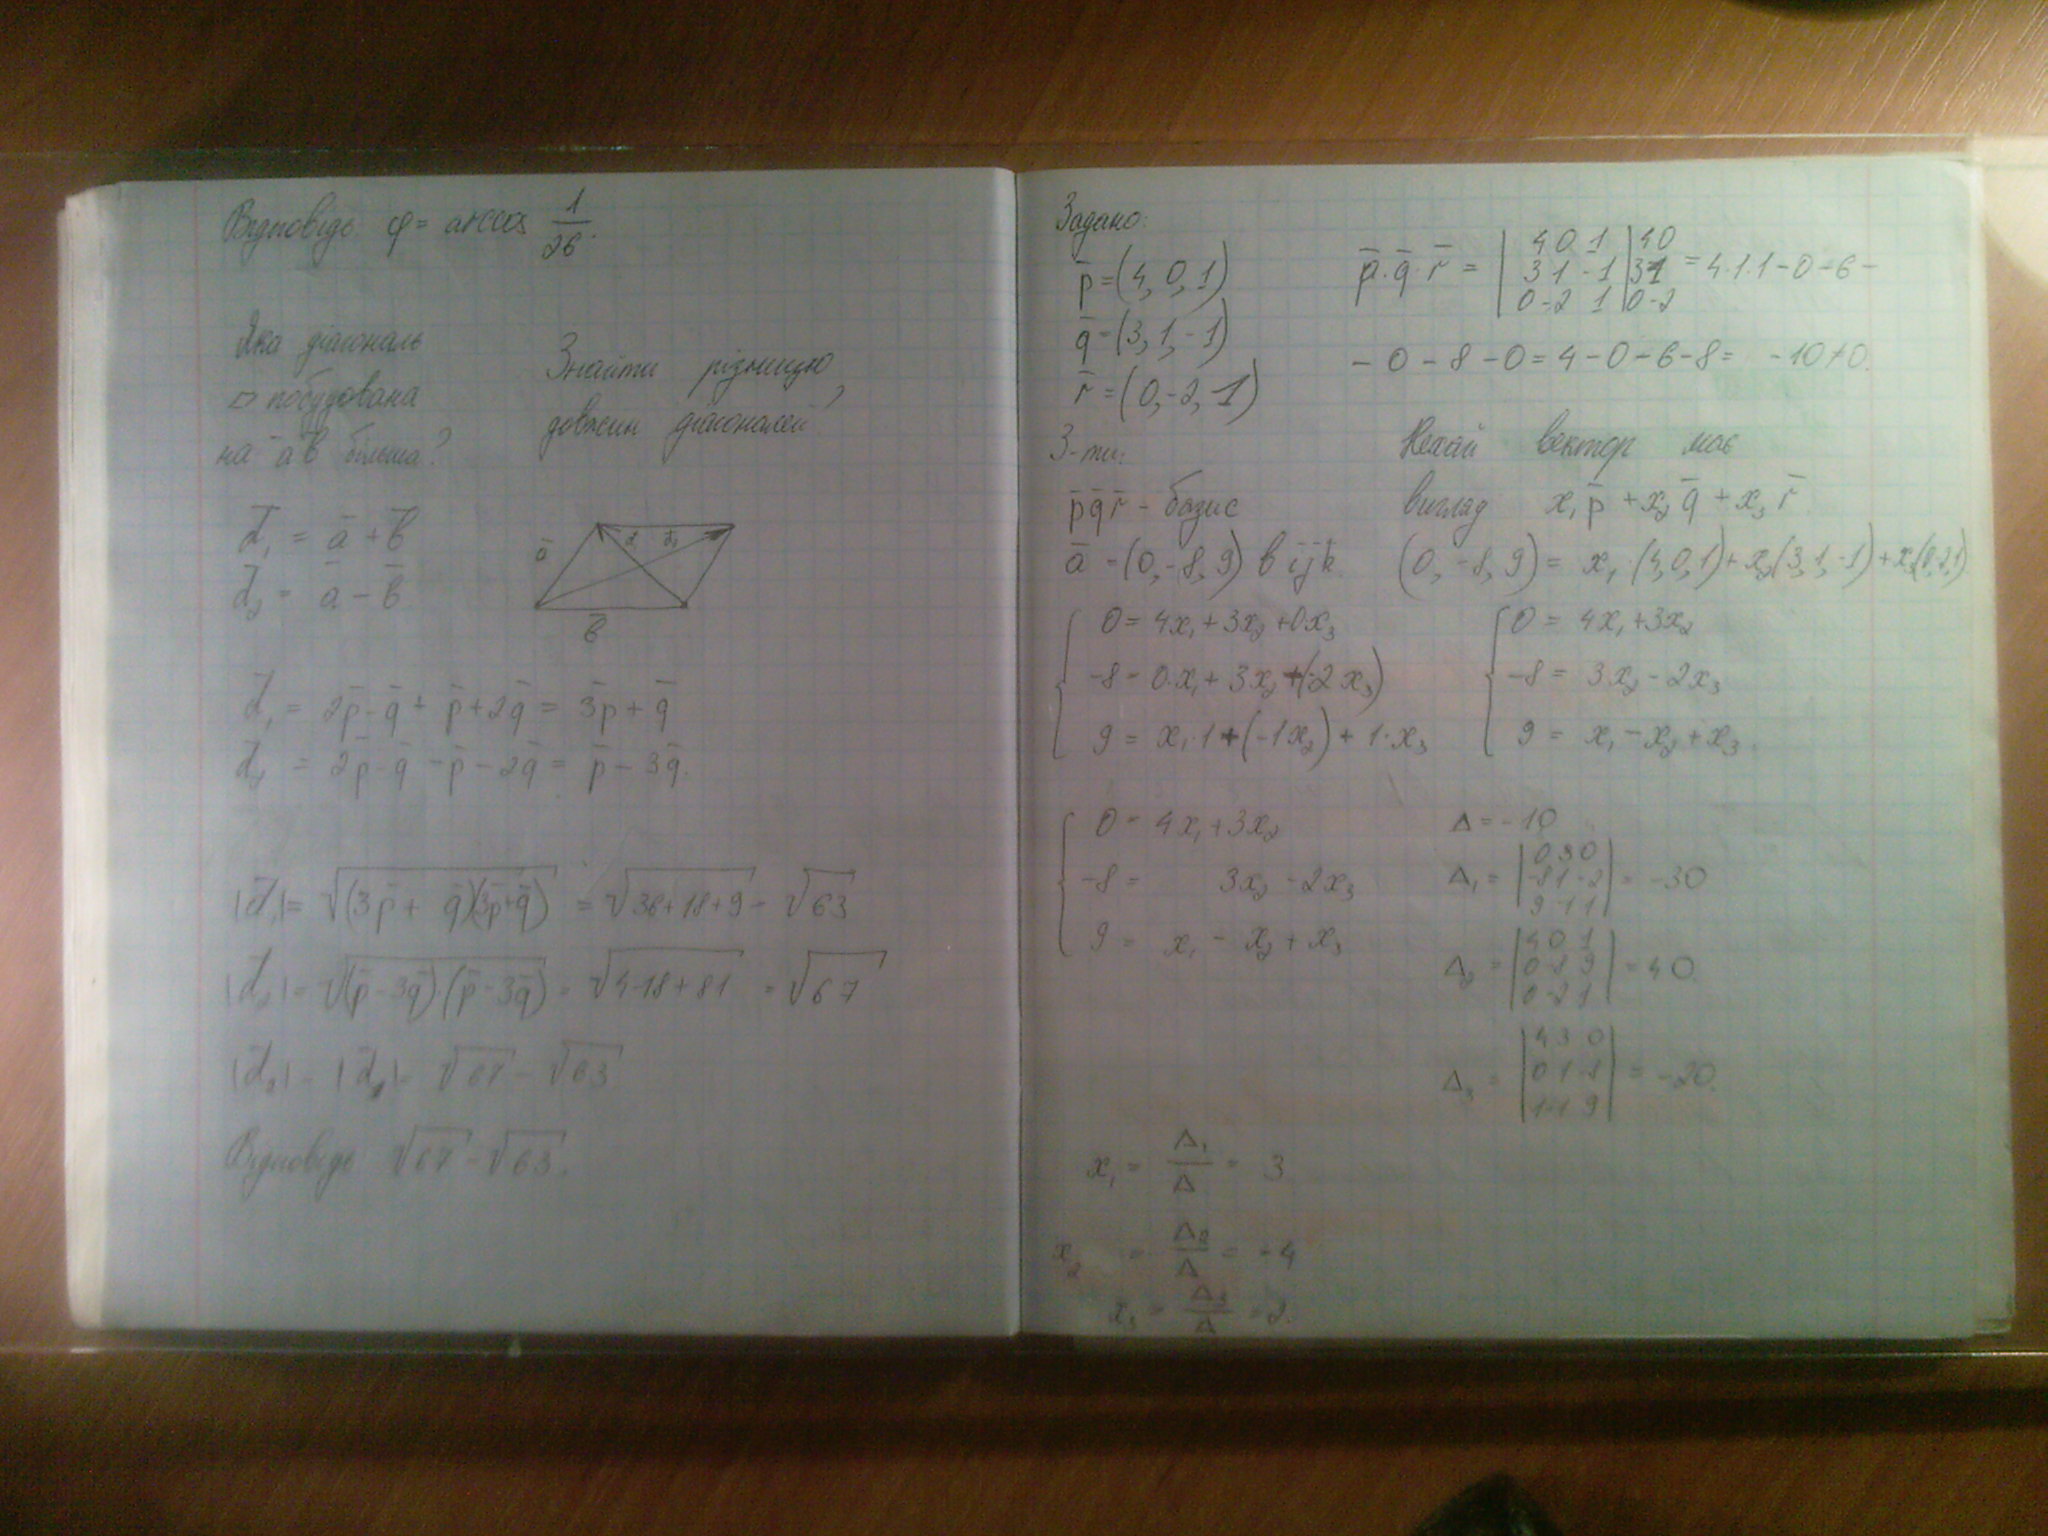 Відповідь φ = arccos 1/26.
Яка діагональ
▱ побудована
на a̅ b̅ більша?
Знайти різницю
довжин діагоналей
d̅₁ = a̅ + b̅
d̅₂ = a̅ − b̅
a̅
d₁
b̅
d̅₁ = 2p̅ - q̅ + p̅ + 2q̅ = 3p̅ + q̅
d̅₂ = 2p̅ - q̅ - p̅ - 2q̅ = p̅ - 3q̅.
|d̅₁| = √(3p̅ + q̅)(3p̅+q̅) = √36+18+9 = √63
|d̅₂| = √(p̅ - 3q̅)·(p̅ - 3q̅) = √4-18+81 = √67
|d̅₂| - |d̅₁| = √67 - √63
Відповідь √67 - √63.
Задано:
p̅ = (4, 0, 1)
q̅ = (3, 1, -1)
r̅ = (0, -2, 1)
p̅·q̅·r̅ = | 4 0 1 | 4 0
3 1 -1 | 3 1 = 4·1·1 - 0 - 6 -
0 -2 1 | 0 -2
- 0 - 8 - 0 = 4 - 0 - 6 - 8 = -10 ≠ 0.
З-ти:
p̅ q̅ r̅ - базис
a̅ = (0, -8, 9) в i j k.
Нехай вектор має
вигляд x₁p̅ + x₂q̅ + x₃r̅.
(0, -8, 9) = x₁·(4,0,1) + x₂(3,1,-1) + x₃(0,-2,1)
0 = 4x₁ + 3x₂ + 0x₃
-8 = 0·x₁ + 3x₂ + (-2x₃)
9 = x₁·1 + (-1x₂) + 1·x₃
0 = 4x₁ + 3x₂
-8 = 3x₂ - 2x₃
9 = x₁ - x₂ + x₃.
0 = 4x₁ + 3x₂
-8 = 3x₂ - 2x₃
9 = x₁ - x₂ + x₃
Δ = -10
Δ₁ = | 0 3 0 |
-8 1 -2 = -30
9 -1 1
Δ₂ = | 4 0 1 |
0 -8 9 = 40.
0 -2 1
Δ₃ = | 4 3 0 |
0 1 -8 = -20.
1 -1 9
x₁ = Δ₁/Δ = 3
x₂ = Δ₂/Δ = -4
x₃ = Δ₃/Δ = 2.